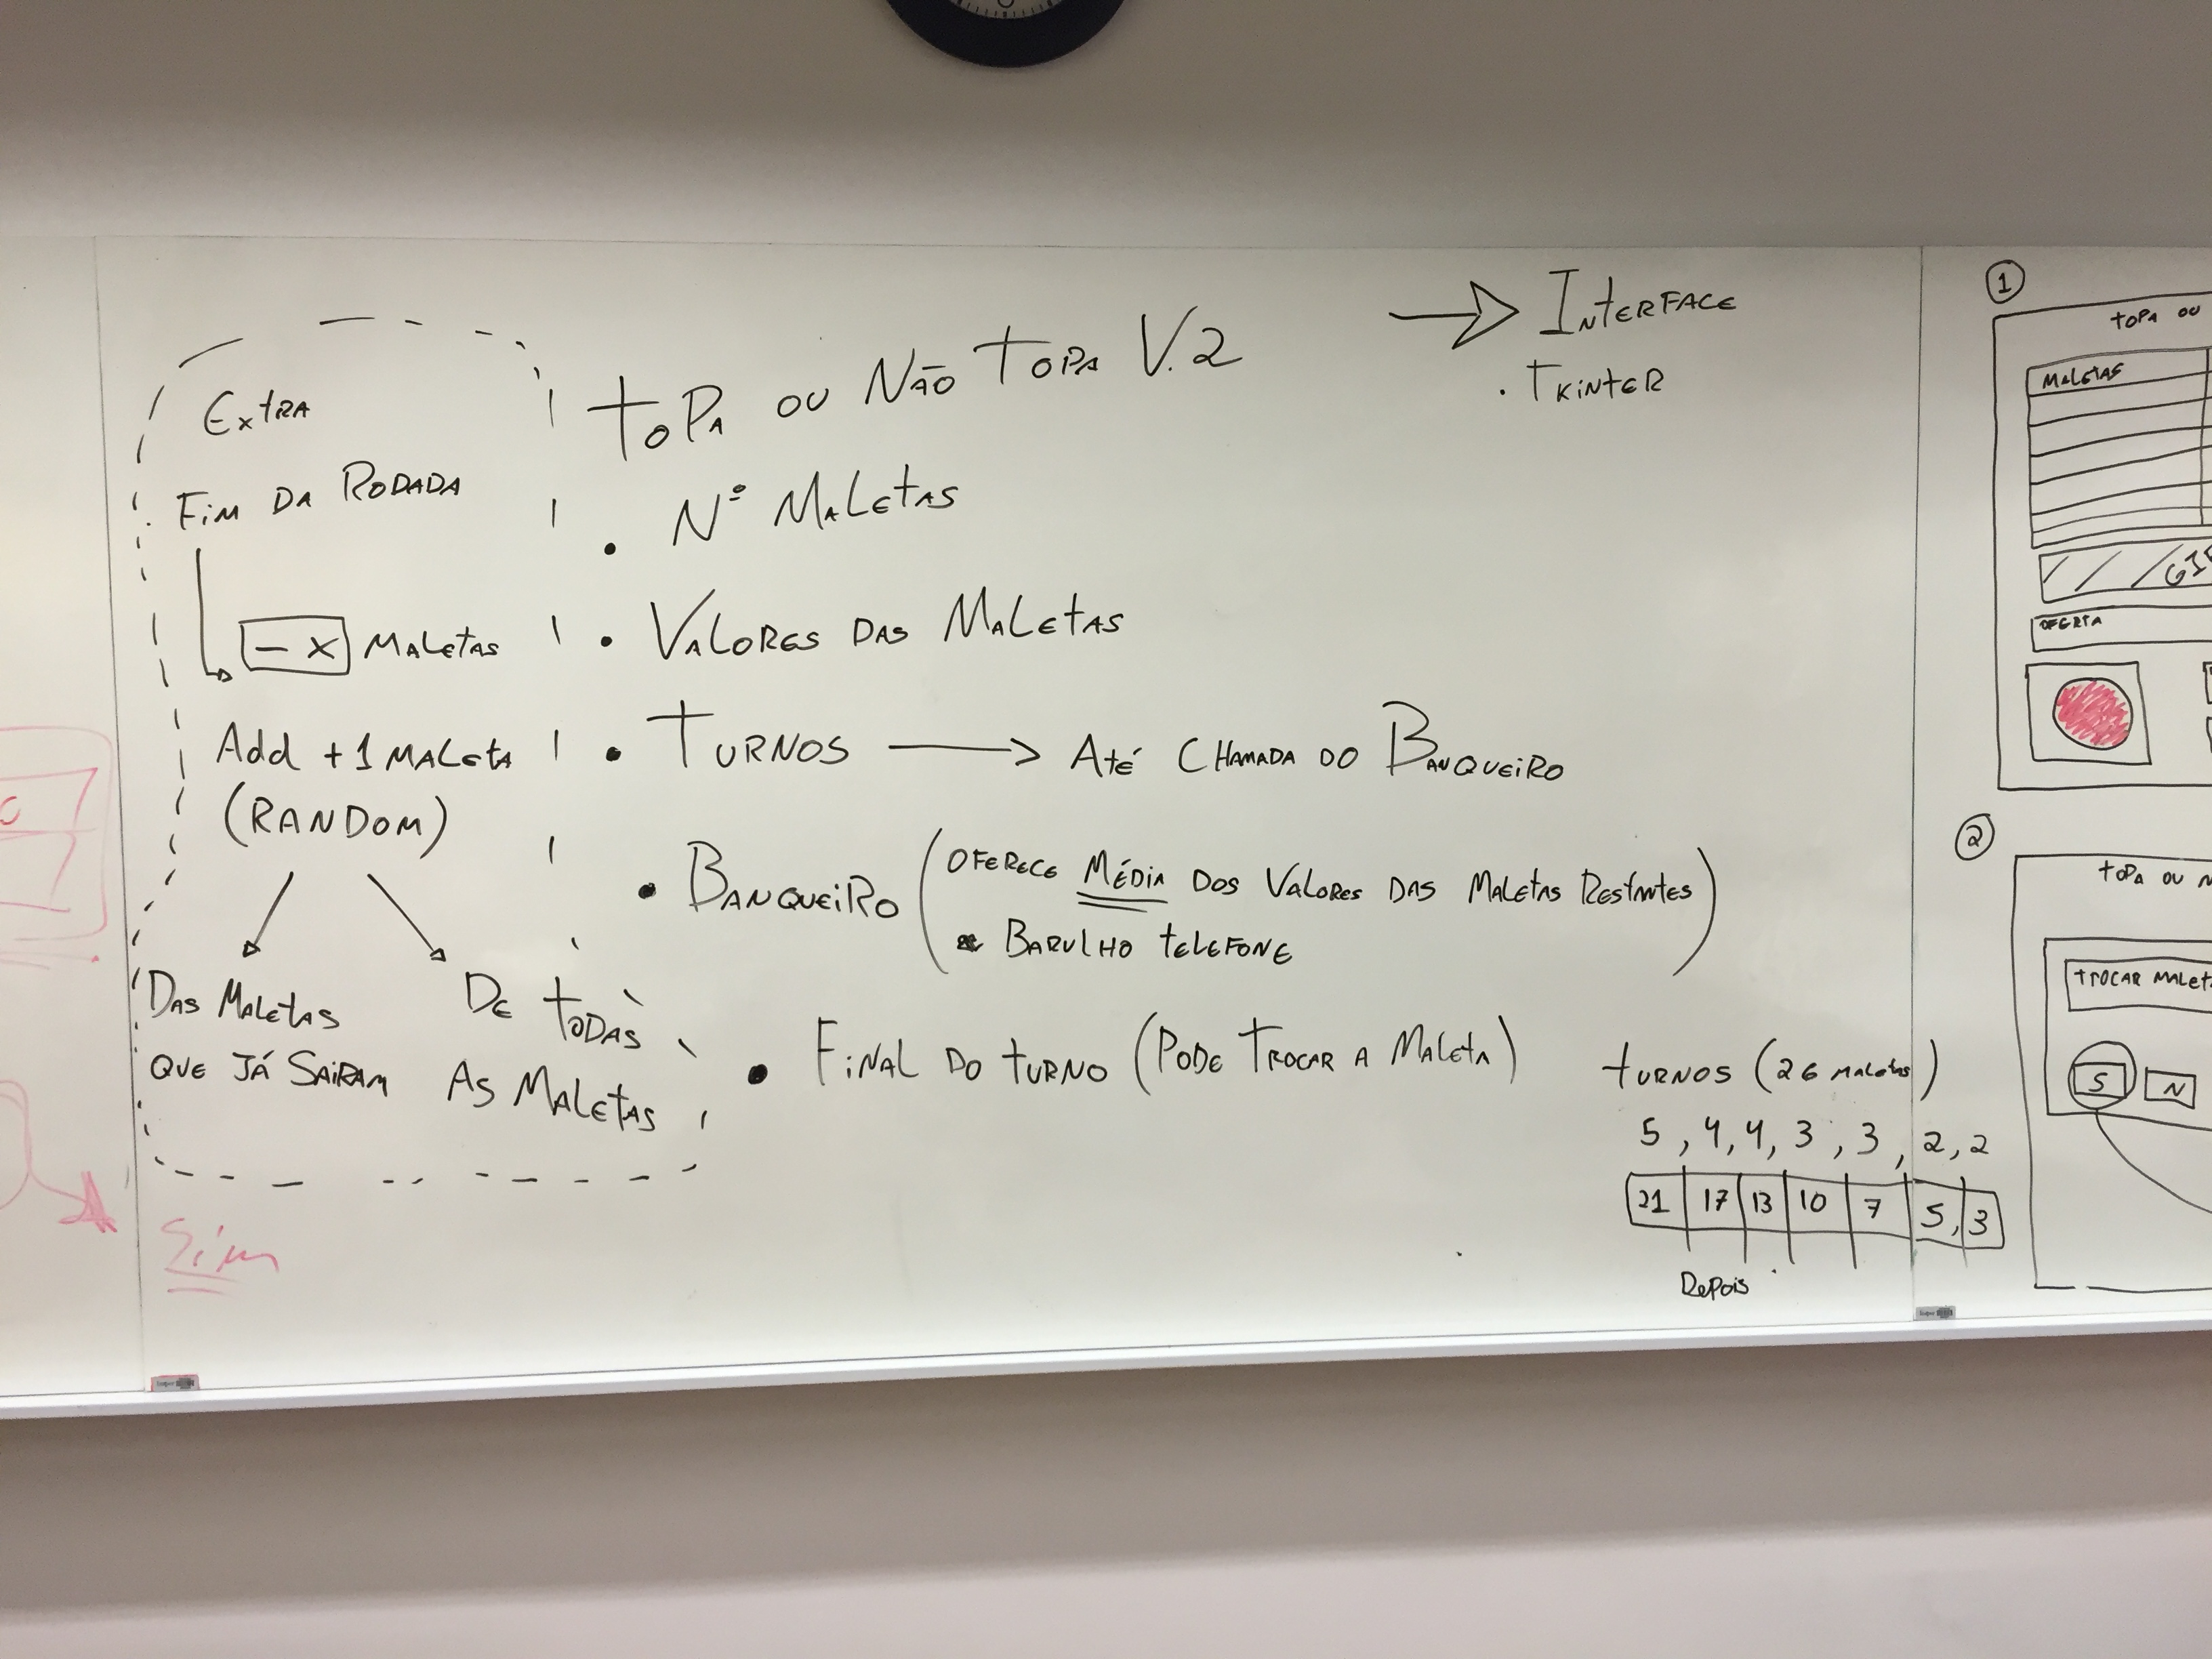 Extra
Fim da Rodada
- x Maletas
Add +1 Maleta
(Random)
Das Maletas
que já sairam
De todas
as Maletas
Sim
Topa ou Não Topa V.2
• Nº Maletas
• Valores das Maletas
• Turnos → Até chamada do Banqueiro
• Banqueiro (oferece Média dos Valores das Maletas Restantes
Barulho telefone)
• Final do turno (Pode Trocar a Maleta)
→ Interface
. Tkinter
turnos (26 maletas)
5, 4, 4, 3, 3, 2, 2
21 17 13 10 7 5, 3
Depois
1
topa ou
Maletas
oferta
2
topa ou N
trocar malet
S N